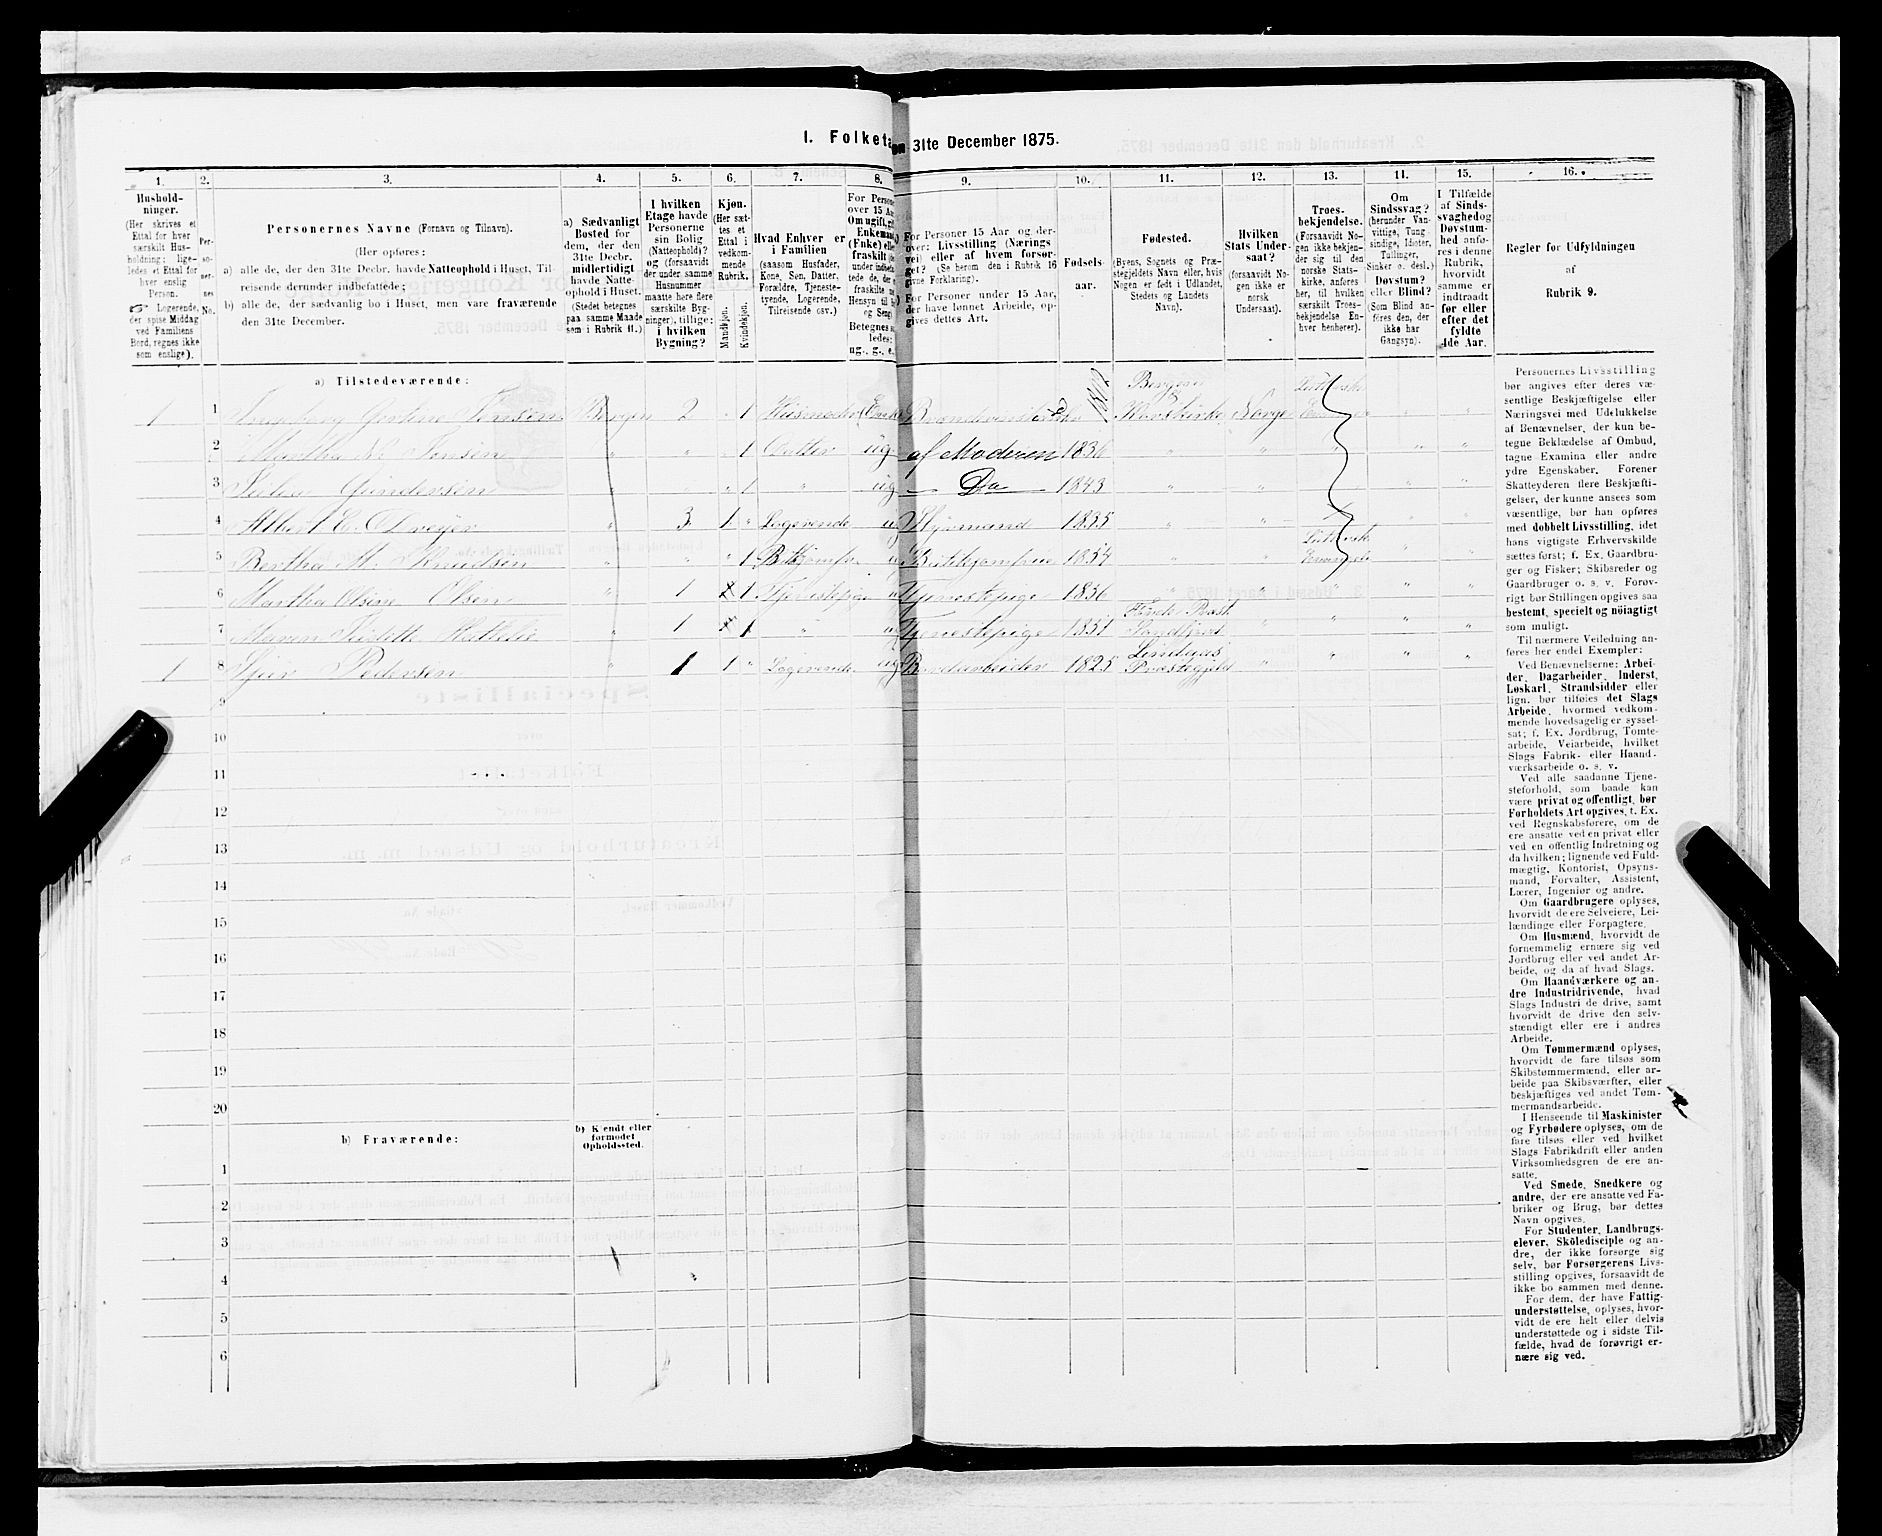 1. Folketa
en 31te December 1875.
1. 2. 3. 4. 5. 6. 7. 8. 9. 10. 11. 12. 13. 14. 15. 16.
Hushold-
ninger.
(Her skrives et
Ettal for hver
særskilt Hus-
holdning; lige-
ledes et Ettal for
hver enslig
Person.
Logerende,
der spise Middag
ved Familiens
Bord, regnes ikke
som enslige).
Per-
so-
ner-
nes
No.
Personernes Navne (Fornavn og Tilnavn).
(Her opføres:
a) alle de, der den 31te Decbr. havde Natteophold i Huset, Til-
reisende derunder indbefattede;
b) alle de, der sædvanlig bo i Huset, men vare fraværende
den 31te December.
a) Sædvanligt
Bosted for
dem, der den
31te Decbr.
midlertidigt
havde Natte-
ophold i Huset.
(Stedet betegnes
paa samme Maade
som i Rubrik 11.)
I hvilken
Etage havde
Personerne
sin Bolig
(Natteophold)?
og (forsaavidt
der under samme
Husnummer
maatte høre flere
særskilte Byg-
ninger), tillige:
i hvilken
Bygning?
Kjøn.
(Her sæt-
tes et
Ettal i
vedkom-
mende
Rubrik.
Mandkjøn.
Kvindekjøn.
Hvad Enhver er
i Familien
(saasom Husfader,
Kone, Søn, Datter,
Forældre, Tjeneste-
tyende, Logerende,
Tilreisende osv.)
For Persone
over 15 Aa
Om ugift, gif
Enkemand
(Enke)
fraskilt
Betegnes
ledes:
ug., g., e.
For Personer 15 Aar og der-
over: Livsstilling (Nærings
vei) eller af hvem forsør-
get? (Se herom den i Rubrik 16
givne Forklaring).
For Personer under 15 Aar,
der have lønnet Arbeide, op-
gives dettes Art.
Fødsels-
aar.
Fødested.
(Byens, Sognets og Præ-
stegjeldets Navn eller, hvis
Nogen er født i Udlandet,
Stedets og Landets
Navn).
Hvilken
Stats Under-
saat?
(forsaavidt No-
gen ikke er
norsk
Undersaat).
Troes-
bekjendelse.
(Forsaavidt No-
gen ikke bekjen-
der sig til den
norske Stats-
kirke, anføres
her, til hvilken
særskilt Troes-
bekjendelse En-
hver henhører).
Om
Sindssvag?
(herunder Van-
vittige, Tung-
sindige, Idioter,
Tullinger,
Sinker o. desl.)
Døvstum?
eller Blind?
(Som Blind an-
føres den, der
ikke har
Gangsyn).
I Tilfælde
af Sinds-
svaghed og
Døvstum-
hed anfø-
res i denne
Rubrik,
hvorvidt
samme er
indtraadt
før eller
efter det
fyldte
4de Aar.
Regler for Udfyldningen
af
Rubrik 9.
a) Tilstedeværende:
1 1 Jensen Bergen 2 1 Husmoder Enke 1802 Bergen Korskirke Norge
2 Martha Jensen 1 Datter ug af Moderen 1836
3 Gundersen 1 ug Do 1843
4 Albert C. Dreyer 3 1 Logerende 1835
5 Bertha M. Knudsen 1 Butikjomfru 1854
6 Martha Olsine Olsen 1 1 Tjenestepige Tjenestepige 1856
7 Maren 1 1 Tjenestepige 1851
1 8 Pedersen 1 1 Logerende ug 1825 Lindaas Præstegjeld
9
10
11
12
13
14
15
16
17
18
19
20
b) Fraværende:
b) Kjendt eller
formodet
Opholdssted.
1
2
3
4
5
6
Personernes Livsstilling
bør angives efter deres væ-
sentlige Beskjæftigelse eller
Næringsvei med Udelukkelse
af Benævnelser, der kun be-
tegne Beklædelse af Ombud,
tagne Examina eller andre
ydre Egenskaber. Forener
Skatteyderen flere Beskjæfti-
gelser, der kunne ansees som
væsentlige, bør han opføres
med dobbelt Livsstilling, idet
hans vigtigste Erhvervskilde
sættes først; f. Ex. Gaardbru-
ger og Fisker; Skibsreder og
Gaardbruger o. s. v. Forøv-
rigt bør Stillingen opgives saa
bestemt, specielt og nöiagtigt
som muligt.
Til nærmere Veiledning an-
føres her endel Exempler:
Ved Benævnelserne: Arbei-
der, Dagarbeider, Inderst,
Løskarl, Strandsidder eller
lign. bør tilføies det Slags
Arbeide, hvormed vedkom-
mende hovedsagelig er syssel-
sat; f. Ex. Jordbrug, Tomte-
arbeide, Veiarbeide, hvilket
Slags Fabrik- eller Haand-
værksarbeide o. s. v.
Ved alle saadanne Tjene-
steforhold, som baade kan
være privat og offentligt, bør
Forholdets Art opgives, t. Ex.
ved Regnskabsførere, om de
ere ansatte ved en privat eller
ved en offentlig Indretning og
da hvilken; lignende ved Fuld-
mægtig, Kontorist, Opsyns-
mand, Forvalter, Assistent,
Lærer, Ingeniør og andre.
Om Gaardbrugere oplyses,
hvorvidt de ere Selveiere, Lei-
lændinge eller Forpagtere.
Om Husmænd, hvorvidt de
fornemmelig ernære sig ved
Jordbrug eller ved andet Ar-
beide, og da af hvad Slags.
Om Haandværkere og an-
dre Industridrivende, hvad
Slags Industri de drive, samt
hvorvidt de drive den selv-
stændigt eller ere i andres
Arbeide.
Om Tømmermænd oplyses,
hvorvidt de fare tilsøs som
Skibstømmermænd, eller ar-
beide paa Skibsværfter, eller
beskjæftiges ved andet Tøm-
mermandsarbeide.
I Henseende til Maskinister
og Fyrbødere oplyses, om de
fare tilsøs eller ved hvilket
Slags Fabrikdrift eller anden
Virksomhedsgren de ere an-
satte.
Ved Smede, Snedkere og
andre, der ere ansatte ved Fa-
briker og Brug, bør dettes
Navn opgives.
For Studenter, Landbrugs-
elever, Skoledisciple og an-
dre, der ikke forsørge sig
selv, bør Forsørgerens Livs-
stilling opgives, forsaavidt de
ikke bo sammen med denne.
For dem, der have Fattig-
understøttelse, oplyses, hvor-
vidt de ere helt eller delvis
understøttede og i sidste Til-
fælde, hvad de forøvrigt er-
nære sig ved.